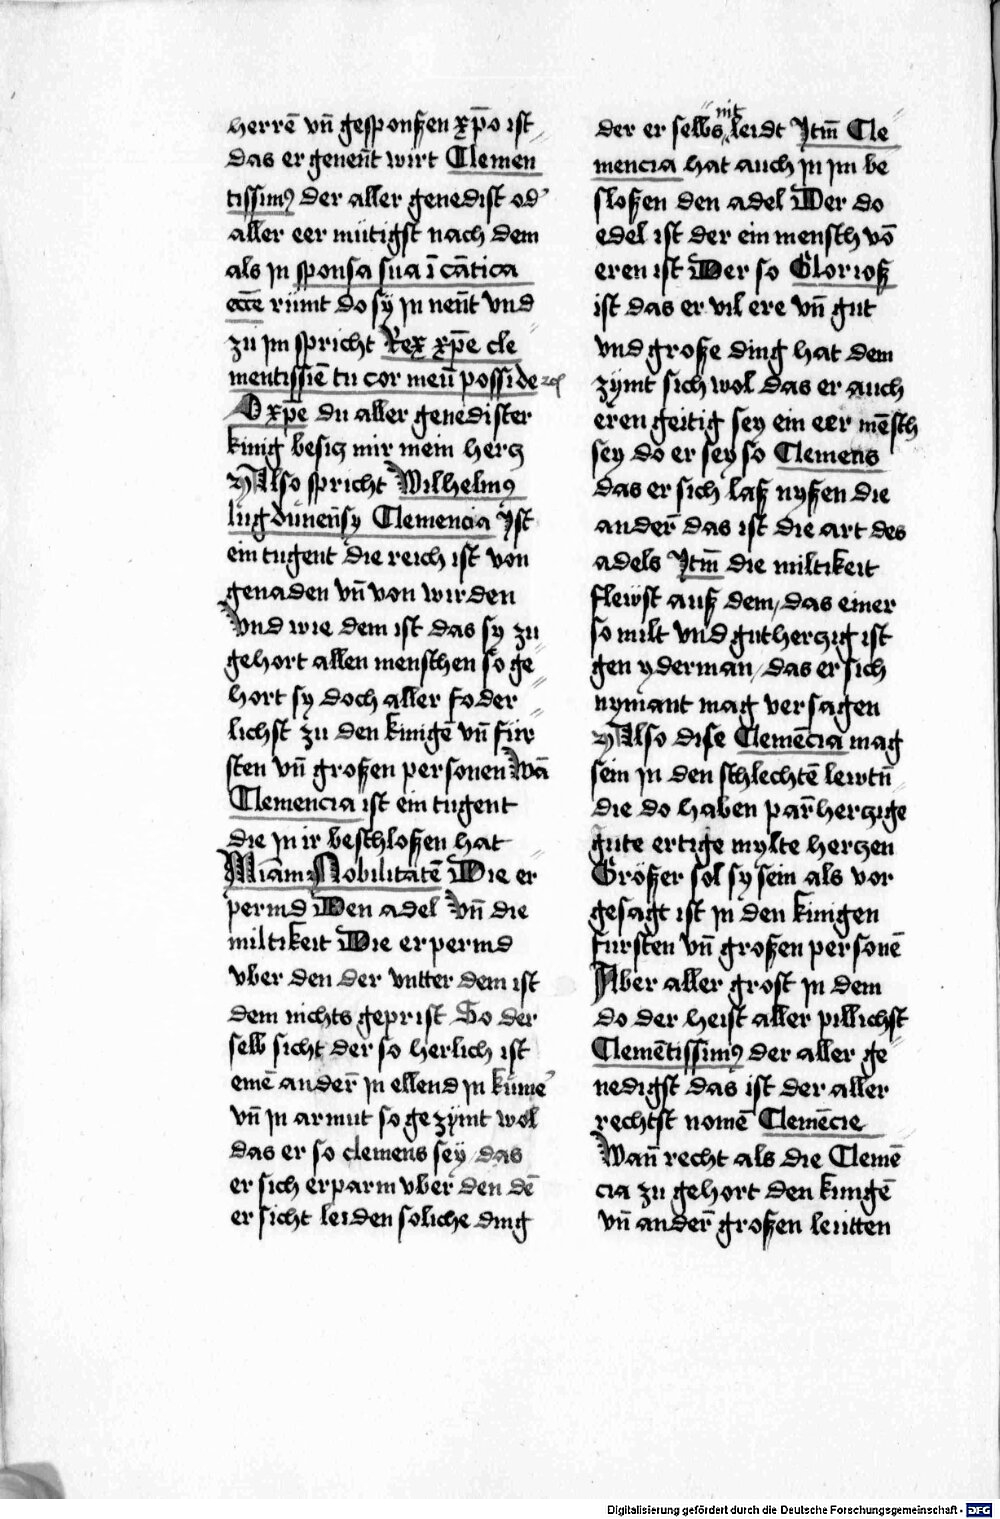 herrē vn̄ gesponßen xp̄o ist
das er genen̄t wirt Clemen
tissimꝰ der aller genedist od'
aller eer mütigst nach dem
als jn sponsa sua ī cātica
ecc̄e rümt do sÿ jn nen̄t vnd
zu jm spricht Rex xp̄e cle
mentissīe tu cor meū posside
O xp̄e du aller genedister
kinig besicz mir mein hercz
Also spricht Wilhelmꝰ
lugdunen̄sy Clemencia Jst
ein tugent die reich ist von
genaden vn̄ von wirden
Vnd wie dem ist das sy zu
gehort allen menschen so ge
hort sy doch aller foder
lichst zu den kinigē vn̄ für
sten vn̄ großen personen Wā
Clemencia ist ein tugent
die jn ir beschloßen hat
Nobilitatē Die er
permd Den adel Vn̄ die
miltikeit Die er permd
vber den der vntter dem ist
dem nichts geprist So der
selb sicht der so herlich ist
emē ander̄ jn ellend jn kume'
vn̄ jn armut so gezÿmt wol
das er so clemens sey das
er sich erparm vber den dē
er sicht leiden soliche ding
der er selbs nit leidt Jtm̄ Cle
mencia hat auch jn jm be
sloßen den adel Der do
edel ist der ein mensch vō
eren ist Der so Glorioß
ist das er vil ere vn̄ gut
vnd große ding hat dem
zÿmt sich wol das er auch
eren geitig sey ein eer mēsch
sey do er sey so Clemens
das er sich laß nyßen die
ander̄ das ist die art des
adels Jtm̄ die miltikeit
flewst auß dem, das einer
so milt vnd gutherczig ist
gen yderman, das er sich
nymant mag versagen
Also dise Clemēcia mag
sein jn den schlechtē lewtn̄
die do haben par̄herczige
gute ertige mylte herczen
Größer sol sy sein als vor
gesagt ist jn den kinigen
fursten vn̄ großen personē
Aber aller grost jn dem
do der heist aller pillichst
Clemētissimꝰ der aller ge
nedigst das ist der aller
rechtst nomē Clemēcie
Wan̄ recht als die Clemē
cia zu gehort den kungē
vn̄ ander̄ großen leutten
Digitalisierung gefördert durch die Deutsche Forschungsgemeinschaft - DFG